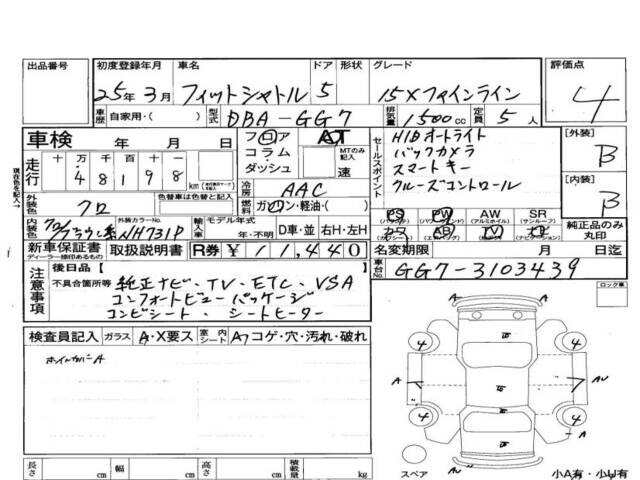 出品番号 初度登録年月 車名 ドア 形状 グレード 評価点
25年 3月 フィットシャトル 5 15Xファインライン 4
車歴 自家用・( ) 型式 DBA-GG7 排気量 1500cc 定員 5人
車検 年 月 日
フロア AT
コラム・
ダッシュ MTのみ記入 速
走行 十 万 千 百 十 一
4 8 1 9 8 km
冷房 AAC
燃料 ガソリン・軽油・( )
外装色 クロ 色替車は色替と記入
内装色 クロ/ブラウン系 外装カラーNo. NH731P
輸入車 モデル年式 年・不明 D車・並 右H・左H
現在色を記入→
セールスポイント
HIDオートライト
バックカメラ
スマートキー
クルーズコントロール
[外装] B
[内装] B
PS PW AW SR
(パワステ) (パワーウィンドウ) (アルミホイル) (サンルーフ)
カワ AB TV ナビ
純正品のみ
丸印
新車保証書 取扱説明書 R券 ¥11,440
ディーラー捺印あるもの
名変期限 月 日迄
車台No. GG7-3103439
注意事項 後日品( )
不具合箇所等 純正ナビ・TV・ETC・VSA
コンフォートビューパッケージ
コンビシート・シートヒーター
ロック車
検査員記入 ガラス A・X要ス 室内シート Aフコゲ・穴・汚れ・破れ
ホイルカバーA
4 4
A AU
4 4
A AU
スペア
小A有・小U有
長さ cm 幅 cm 高さ cm 積載量 kg